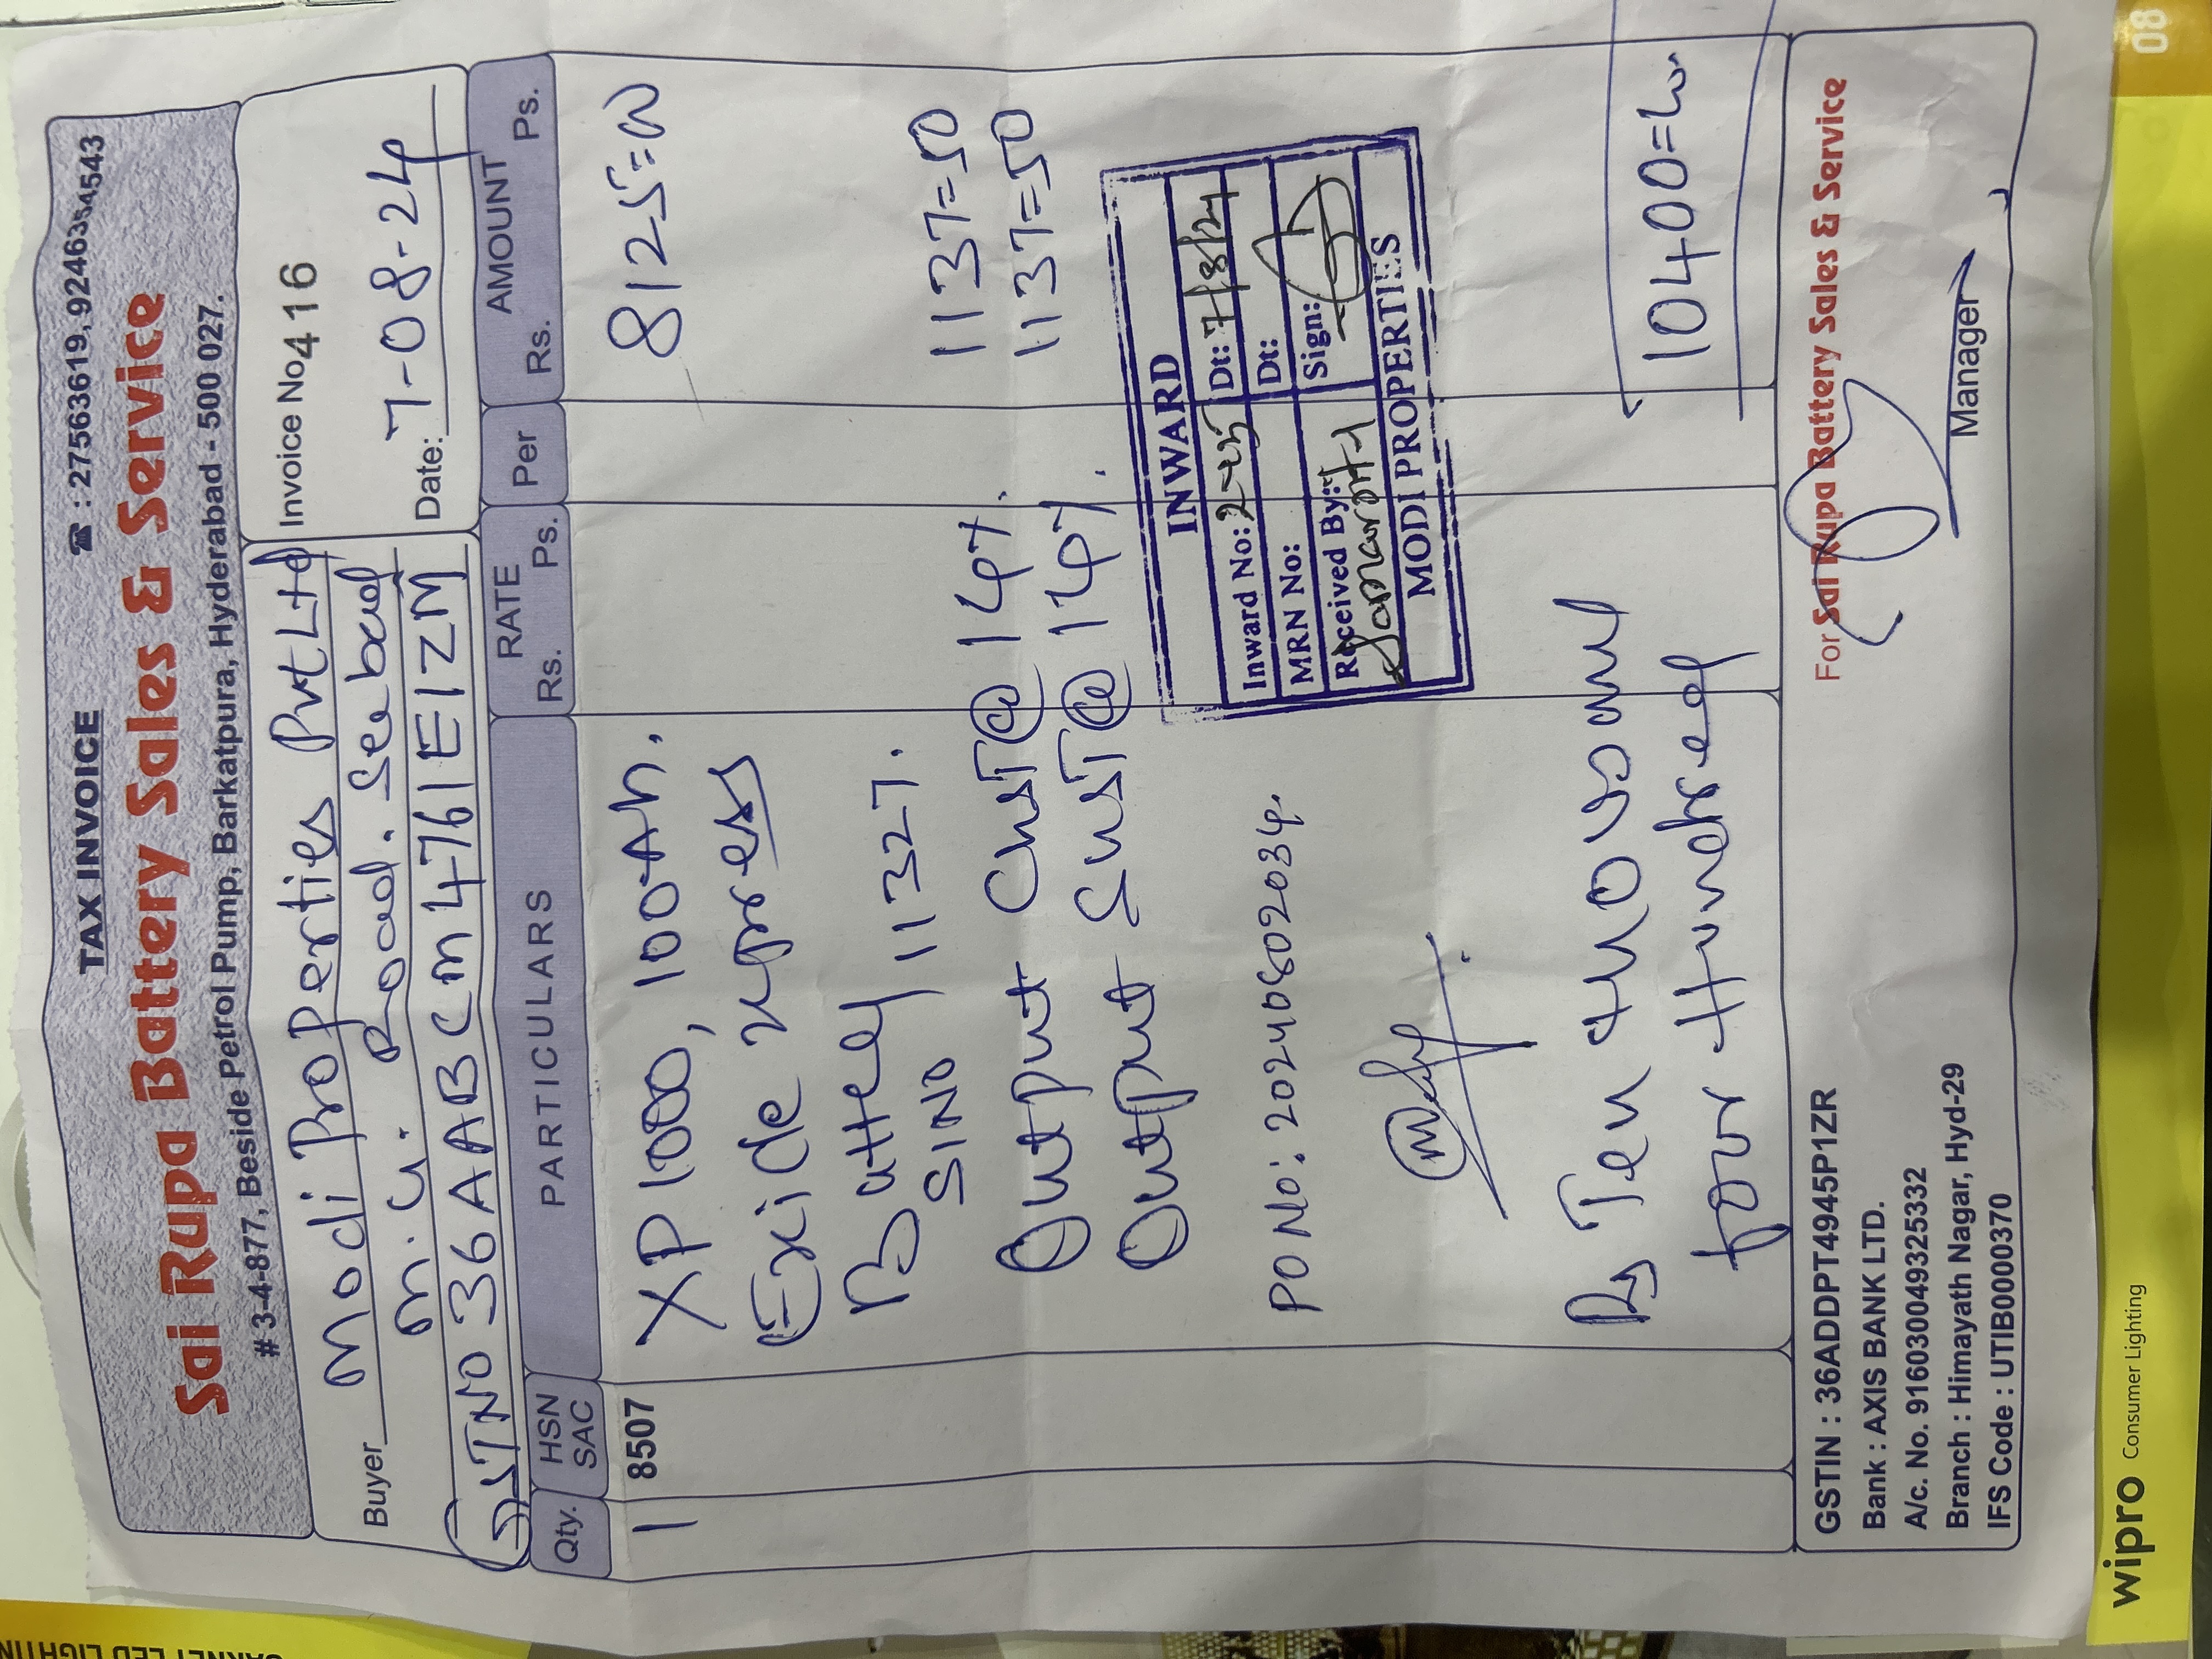 TAX INVOICE ☎ : 27563619, 9246354543
Sai Rupa Battery Sales & Service
# 3-4-877, Beside Petrol Pump, Barkatpura, Hyderabad - 500 027.
Buyer Modi Properties Pvt Ltd
M.G. Road. Secbad
GSTNO 36AABCM4761E1ZM
Invoice No 416
Date: 7-08-24
Qty. HSN SAC PARTICULARS RATE Rs. Ps. Per AMOUNT Rs. Ps.
1 8507 XP1000, 100Ah. 8125=00
Exide Xpress
Battery
SINO 11327.
Output CGST@ 14%. 1137=50
Output SGST@ 14%. 1137=50
PO No: 20240802034.
INWARD
Inward No: Dt: 7/8/24
MRN No: Dt:
Received By: Sign:
MODI PROPERTIES
Rs Ten thousand
four Hundred
10400=00
GSTIN : 36ADDPT4945P1ZR
Bank : AXIS BANK LTD.
A/c. No. 916030049325332
Branch : Himayath Nagar, Hyd-29
IFS Code : UTIB0000370
For Sai Rupa Battery Sales & Service
Manager
wipro Consumer Lighting
08